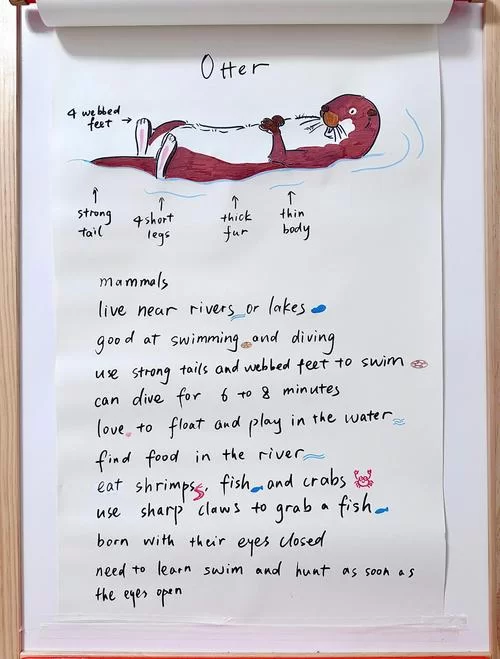 Otter
4 webbed
feet
strong
tail
4 short
legs
thick
fur
thin
body
mammals
live near rivers or lakes
good at swimming and diving
use strong tails and webbed feet to swim
can dive for 6 to 8 minutes
love to float and play in the water
find food in the river
eat shrimps, fish and crabs
use sharp claws to grab a fish
born with their eyes closed
need to learn swim and hunt as soon as
the eyes open